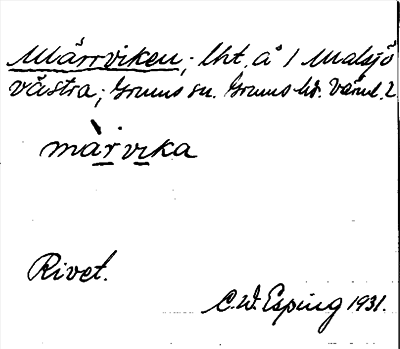 Märrviken; lht. å 1 Malsjö
västra; Grums sn. Grums hd. Värml. 2
màrvika
Rivet.
C. W. Esping 1931.